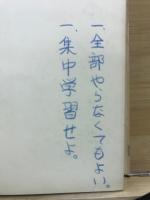 一、全部やらなくてもよい。
一、集中学習せよ。